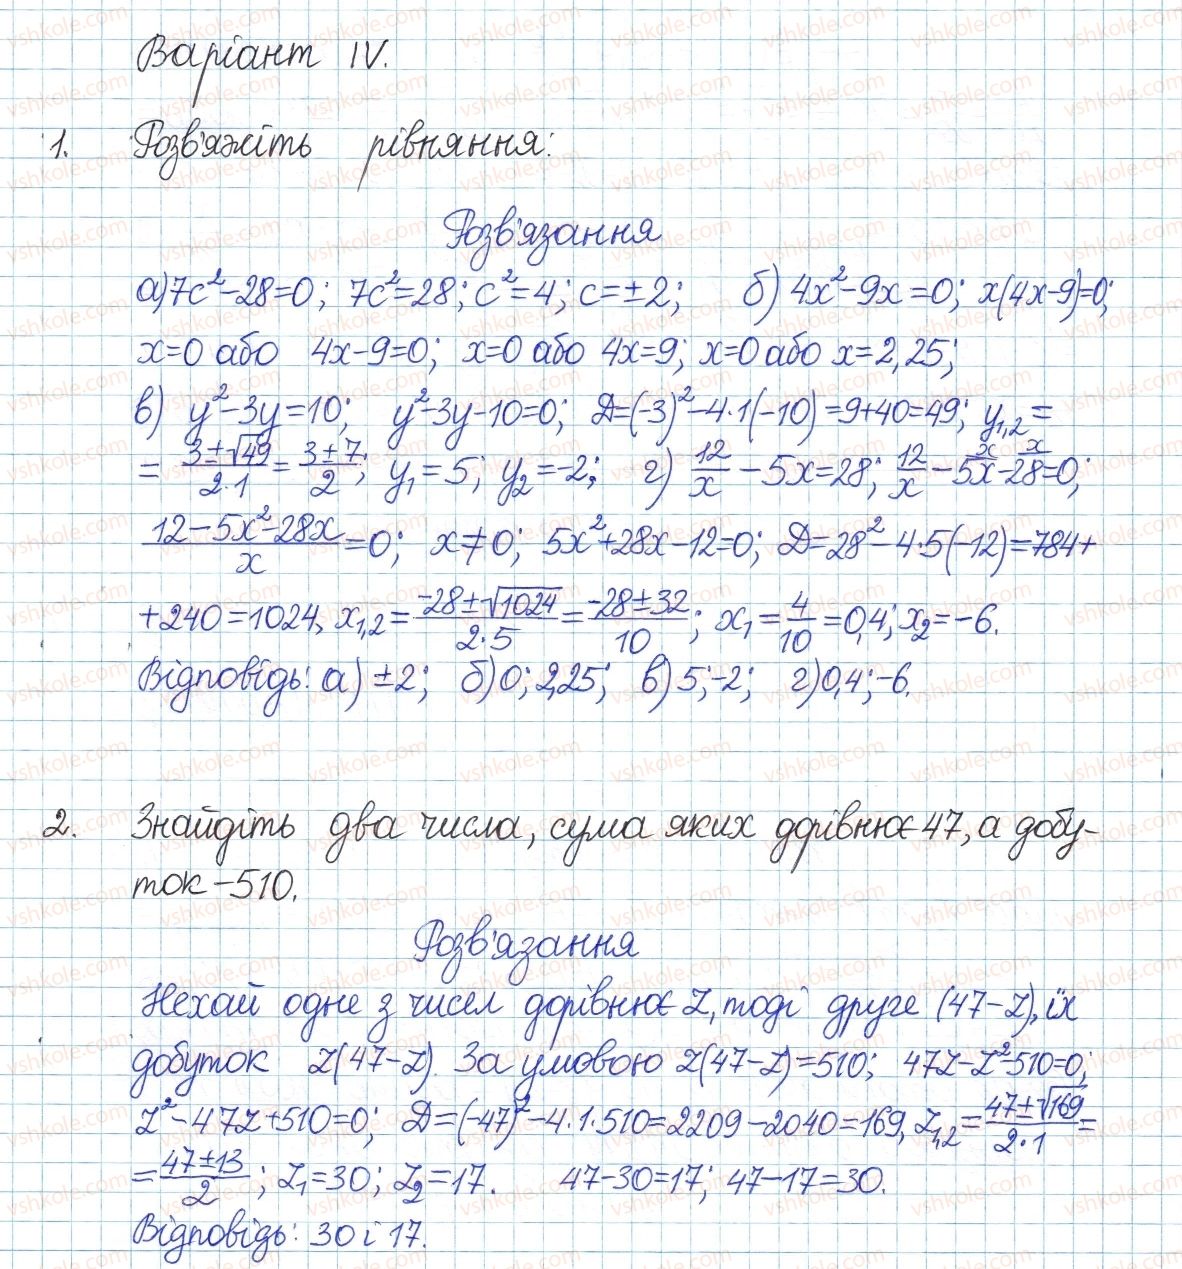 Варіант IV.
1. Розв'яжіть рівняння:
Розв'язання
а) 7c²-28=0; 7c²=28; c²=4; c=±2; б) 4x²-9x=0; x(4x-9)=0;
x=0 або 4x-9=0; x=0 або 4x=9; x=0 або x=2,25;
в) y²-3y=10; y²-3y-10=0; D=(-3)²-4·1(-10)=9+40=49; y₁,₂=
= (3±√49)/(2·1) = (3±7)/2; y₁=5; y₂=-2; г) 12/x - 5x=28; 12/x - 5x^x - 28^x=0;
(12-5x²-28x)/x=0; x≠0; 5x²+28x-12=0; D=28²-4·5(-12)=784+
+240=1024, x₁,₂=(-28±√1024)/(2·5)=(-28±32)/10; x₁=4/10=0,4; x₂=-6.
Відповідь: а) ±2; б) 0; 2,25; в) 5; -2; г) 0,4; -6.
2. Знайдіть два числа, сума яких дорівнює 47, а добу-
ток -510.
Розв'язання
Нехай одне з чисел дорівнює z, тоді друге (47-z), їх
добуток z(47-z). За умовою z(47-z)=510; 47z-z²-510=0;
z²-47z+510=0; D=(-47)²-4·1·510=2209-2040=169, z₁,₂=(47±√169)/(2·1)=
=(47±13)/2; z₁=30; z₂=17. 47-30=17; 47-17=30.
Відповідь: 30 і 17.